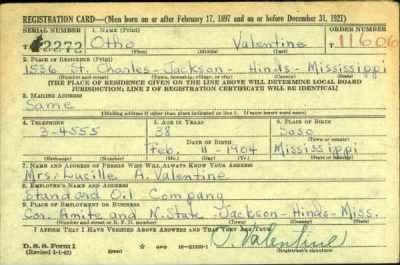 REGISTRATION CARD—(Men born on or after February 17, 1897 and on or before December 31, 1921)
SERIAL NUMBER 1. NAME (Print) ORDER NUMBER
T 2272 Otho Valentine T 11606
(First) (Middle) (Last)
2. PLACE OF RESIDENCE (Print)
1536 St. Charles-Jackson- Hinds-Mississippi
(Number and street) (Town, township, village, or city) (County) (State)
[THE PLACE OF RESIDENCE GIVEN ON THE LINE ABOVE WILL DETERMINE LOCAL BOARD
JURISDICTION; LINE 2 OF REGISTRATION CERTIFICATE WILL BE IDENTICAL]
3. MAILING ADDRESS
Same
[Mailing address if other than place indicated on line 2. If same insert word same]
4. TELEPHONE 5. AGE IN YEARS 6. PLACE OF BIRTH
3-4555 38 Soso
DATE OF BIRTH (Town or county)
Feb. 11-1904 Mississippi
(Exchange) (Number) (Mo.) (Day) (Yr.) (State or country)
7. NAME AND ADDRESS OF PERSON WHO WILL ALWAYS KNOW YOUR ADDRESS
Mrs. Lucille A. Valentine
8. EMPLOYER'S NAME AND ADDRESS
Standard Oil Company
9. PLACE OF EMPLOYMENT OR BUSINESS
Cor. Amite and N. State-Jackson-Hinds-Miss.
(Number and street or R. F. D. number) (Town) (County) (State)
I AFFIRM THAT I HAVE VERIFIED ABOVE ANSWERS AND THAT THEY ARE TRUE.
D. S. S. Form 1 O. Valentine
(Revised 1-1-42) (over) (Registrant's signature)